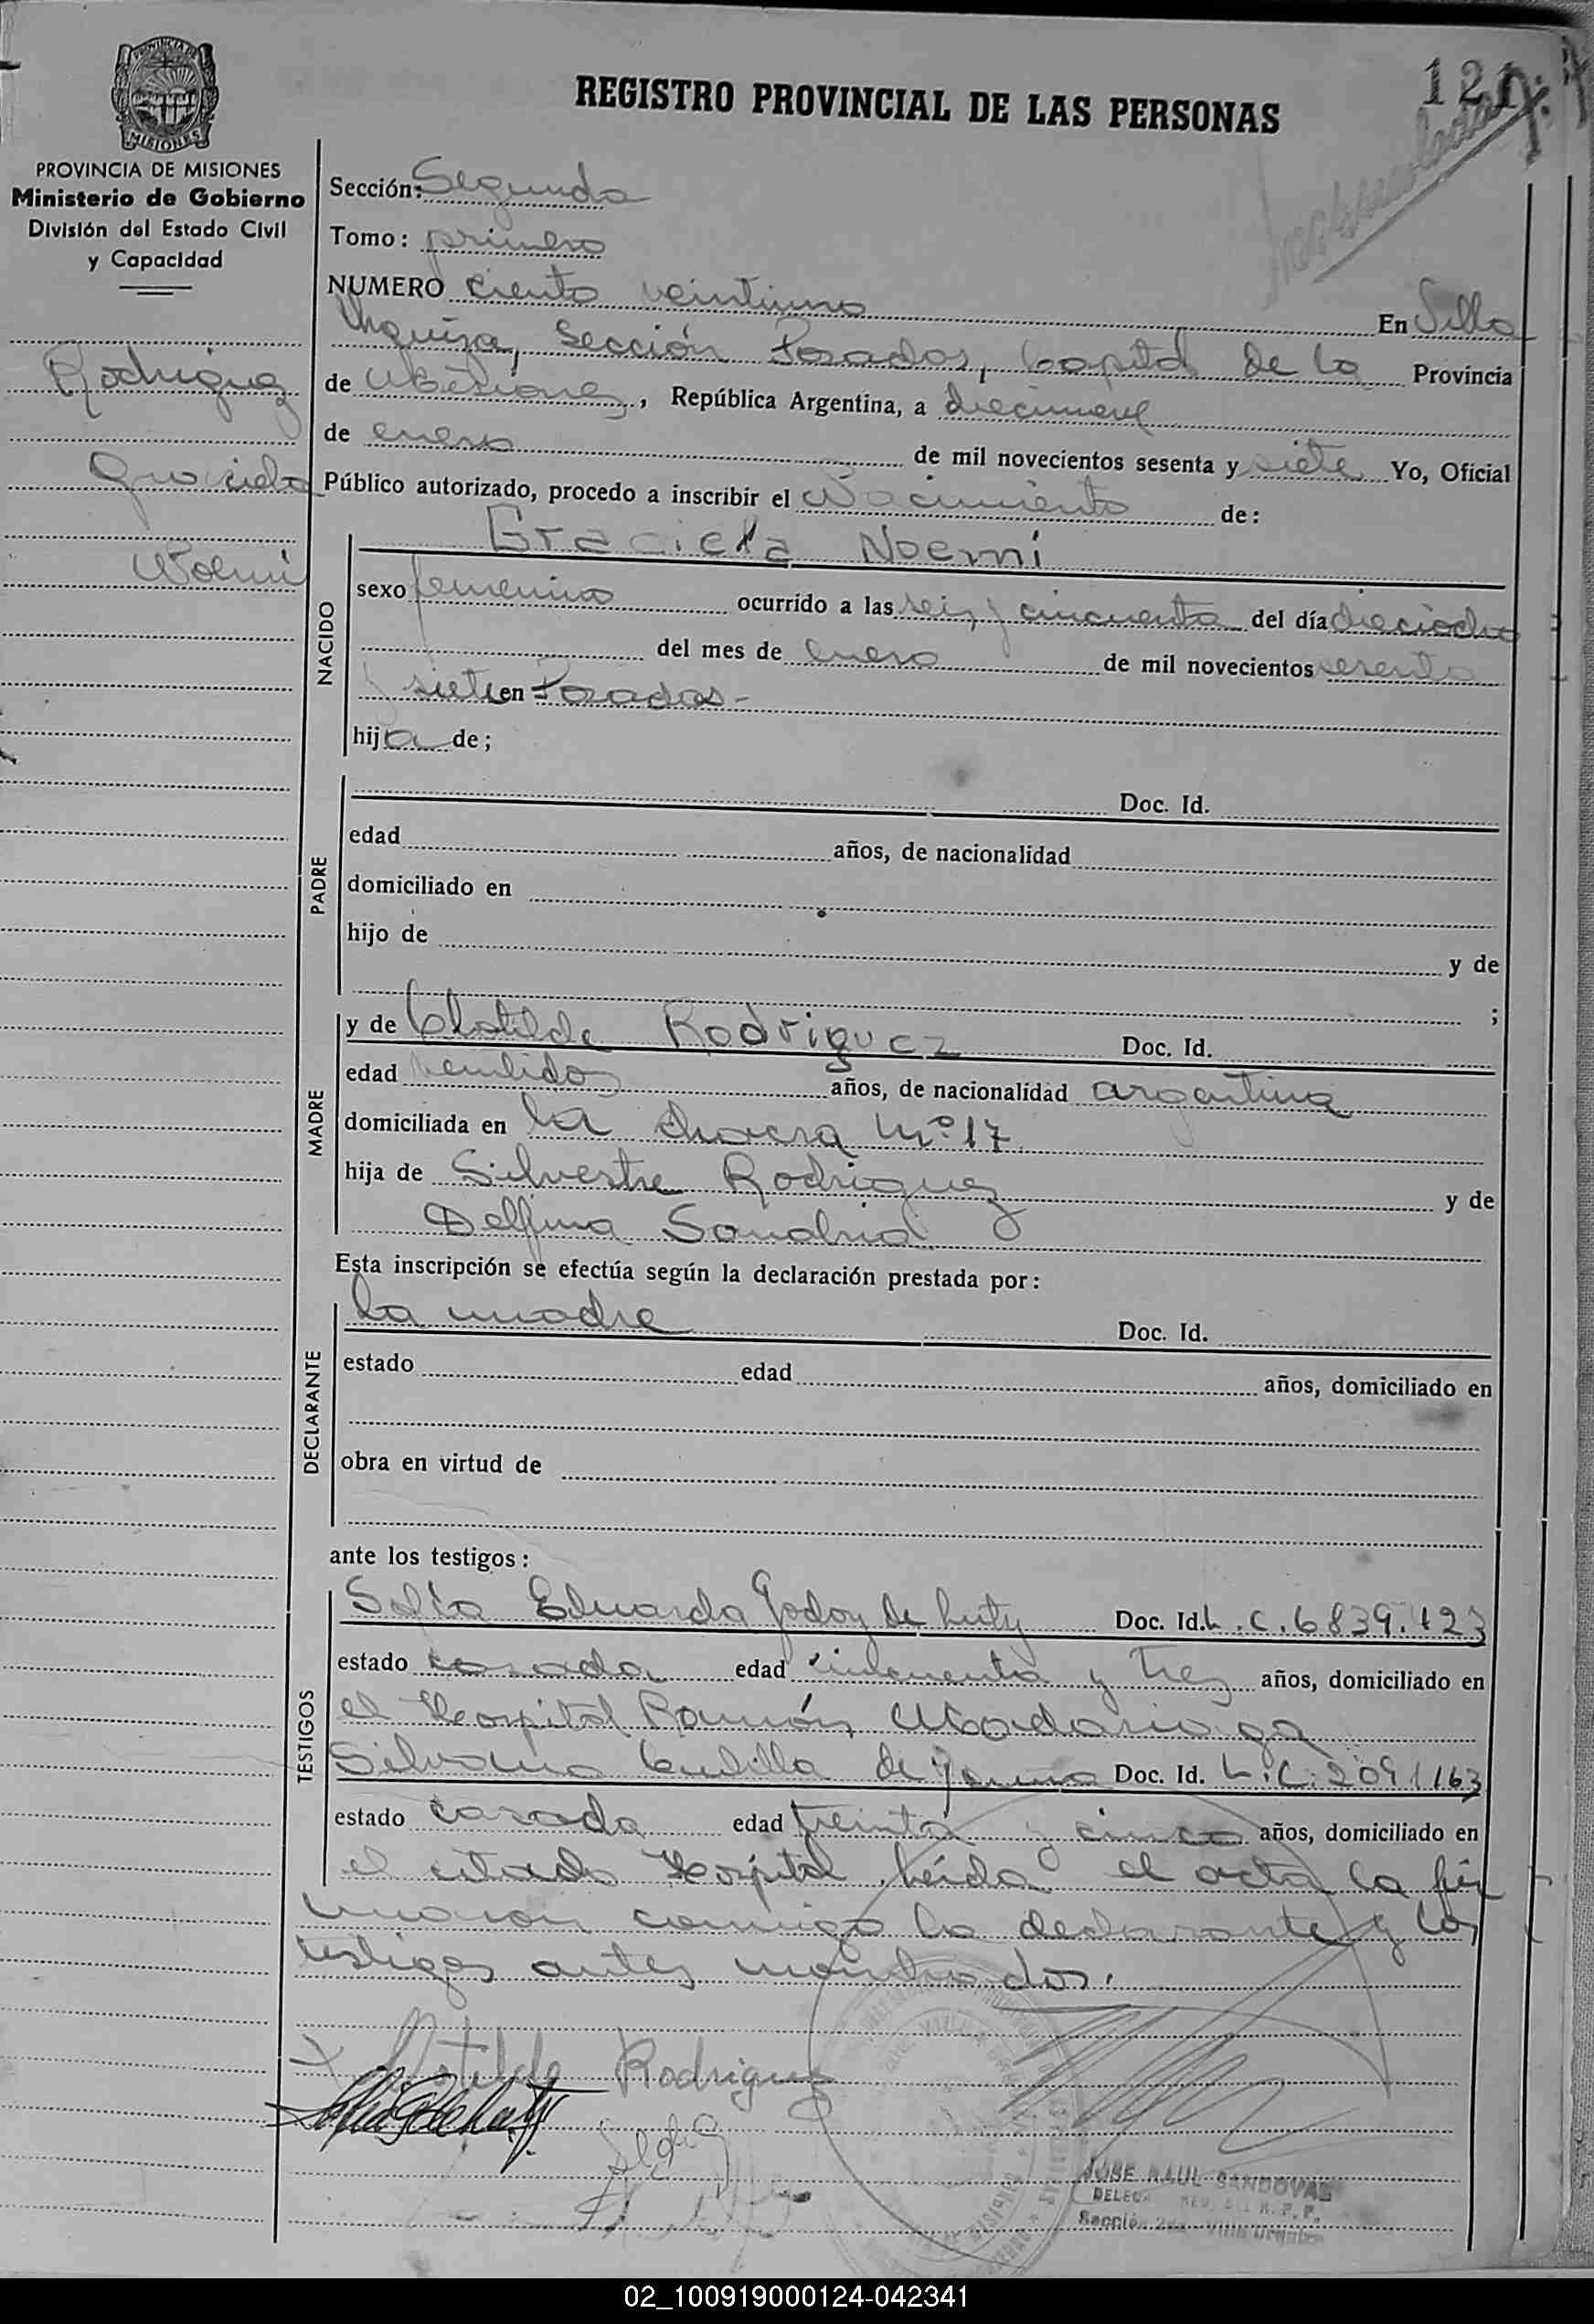 REGISTRO PROVINCIAL DE LAS PERSONAS
121
PROVINCIA DE MISIONES
PROVINCIA DE MISIONES
Ministerio de Gobierno
División del Estado Civil
y Capacidad
Rodriguez
Graciela
Noemí
Sección: Segunda
Tomo: primero
NUMERO ciento veintiuno En Villa
Urquiza, Sección Posadas, Capital de la Provincia
de Misiones, República Argentina, a diecinueve
de enero de mil novecientos sesenta y siete Yo, Oficial
Público autorizado, procedo a inscribir el Nacimiento de:
NACIDO
Graciela Noemí
sexo femenino ocurrido a las seis y cincuenta del día dieciocho
del mes de enero de mil novecientos sesenta
y siete en Posadas-
hija de;
PADRE
Doc. Id.
edad años, de nacionalidad
domiciliado en
hijo de y de
;
MADRE
y de Clotilde Rodriguez Doc. Id.
edad veintidos años, de nacionalidad argentina
domiciliada en la chacra Nº 17.
hija de Silvestre Rodriguez y de
Delfina
Esta inscripción se efectúa según la declaración prestada por:
DECLARANTE
la madre Doc. Id.
estado edad años, domiciliado en
obra en virtud de
ante los testigos:
TESTIGOS
Eduarda Godoy de Doc. Id. L.C. 6839.123
estado casada edad cincuenta y tres años, domiciliado en
el Hospital Ramón Madariaga
Silvana de Doc. Id. L.C. 2091163
estado casada edad treinta y cinco años, domiciliado en
el citado Hospital. Leída el acta la fir
maron conmigo la declarante y los
testigos antes nombrados.
Clotilde Rodriguez
JOSE RAUL SANDOVAL
Sección 2da. Villa Urquiza
02_100919000124-042341